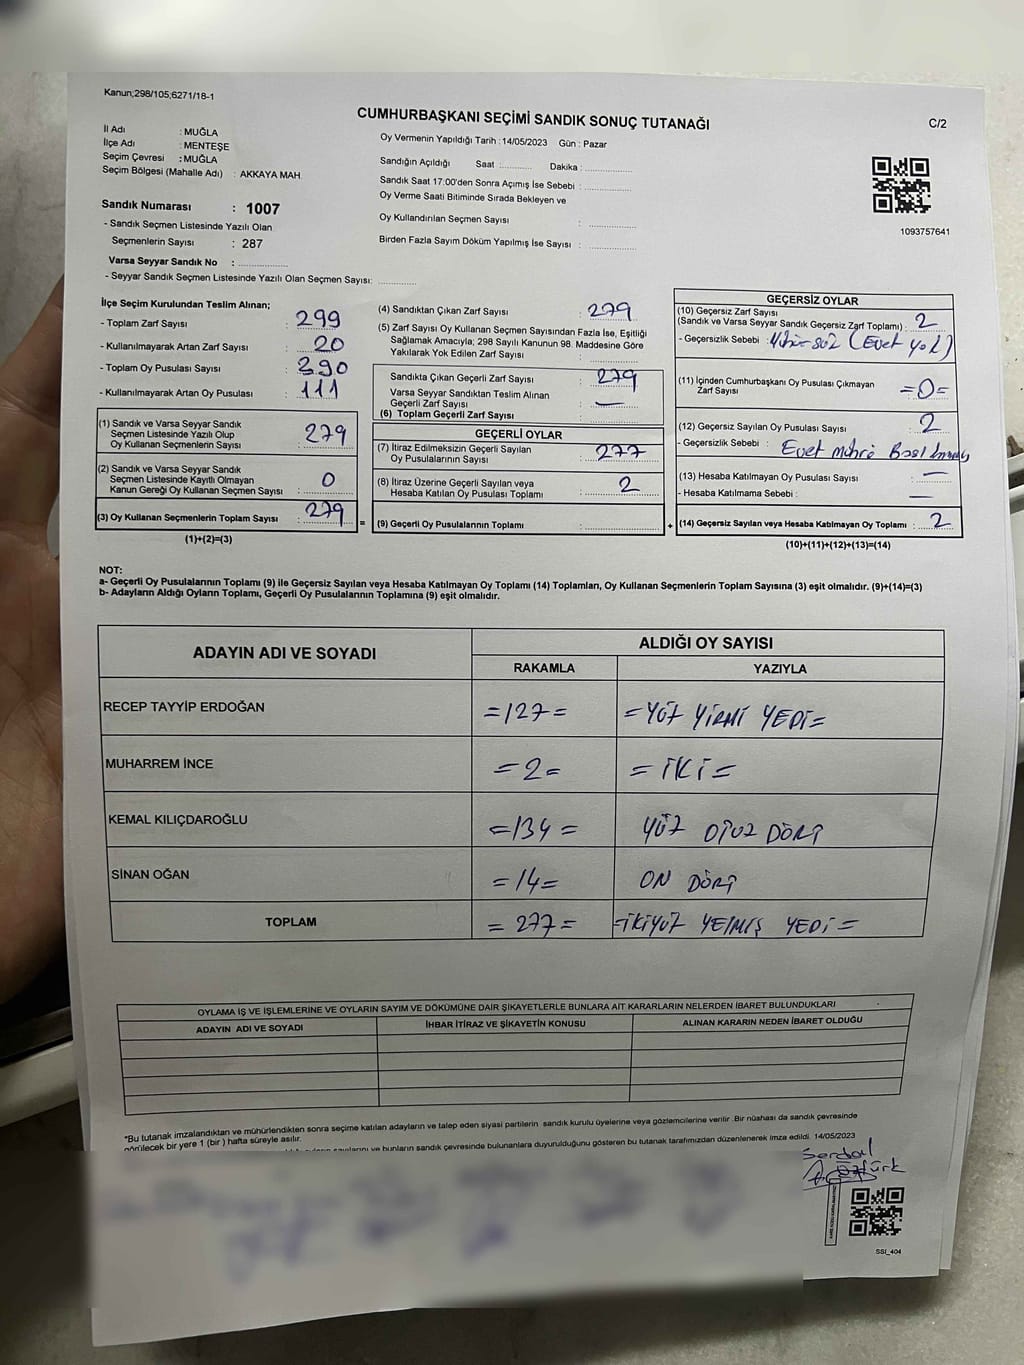 Kanun;298/105;6271/18-1
CUMHURBAŞKANI SEÇİMİ SANDIK SONUÇ TUTANAĞI
C/2
İl Adı : MUĞLA
İlçe Adı : MENTEŞE
Seçim Çevresi : MUĞLA
Seçim Bölgesi (Mahalle Adı) : AKKAYA MAH.
Sandık Numarası : 1007
- Sandık Seçmen Listesinde Yazılı Olan
Seçmenlerin Sayısı : 287
Varsa Seyyar Sandık No :
- Seyyar Sandık Seçmen Listesinde Yazılı Olan Seçmen Sayısı:
Oy Vermenin Yapıldığı Tarih : 14/05/2023 Gün : Pazar
Sandığın Açıldığı Saat : Dakika :
Sandık Saat 17:00'den Sonra Açımış İse Sebebi :
Oy Verme Saati Bitiminde Sırada Bekleyen ve
Oy Kullandırılan Seçmen Sayısı :
Birden Fazla Sayım Döküm Yapılmış İse Sayısı :
1093757641
İlçe Seçim Kurulundan Teslim Alınan;
- Toplam Zarf Sayısı : 299
- Kullanılmayarak Artan Zarf Sayısı : 20
- Toplam Oy Pusulası Sayısı : 390
- Kullanılmayarak Artan Oy Pusulası : 111
(1) Sandık ve Varsa Seyyar Sandık
Seçmen Listesinde Yazılı Olup
Oy Kullanan Seçmenlerin Sayısı : 279
(2) Sandık ve Varsa Seyyar Sandık
Seçmen Listesinde Kayıtlı Olmayan
Kanun Gereği Oy Kullanan Seçmen Sayısı : 0
(3) Oy Kullanan Seçmenlerin Toplam Sayısı : 279
(1)+(2)=(3)
(4) Sandıktan Çıkan Zarf Sayısı : 279
(5) Zarf Sayısı Oy Kullanan Seçmen Sayısından Fazla İse, Eşitliği
Sağlamak Amacıyla; 298 Sayılı Kanunun 98. Maddesine Göre
Yakılarak Yok Edilen Zarf Sayısı :
Sandıkta Çıkan Geçerli Zarf Sayısı : 279
Varsa Seyyar Sandıktan Teslim Alınan
Geçerli Zarf Sayısı : —
(6) Toplam Geçerli Zarf Sayısı
GEÇERLİ OYLAR
(7) İtiraz Edilmeksizin Geçerli Sayılan
Oy Pusulalarının Sayısı : 277
(8) İtiraz Üzerine Geçerli Sayılan veya
Hesaba Katılan Oy Pusulası Toplamı : 2
= (9) Geçerli Oy Pusulalarının Toplamı : +
GEÇERSİZ OYLAR
(10) Geçersiz Zarf Sayısı
(Sandık ve Varsa Seyyar Sandık Geçersiz Zarf Toplamı) : 2
- Geçersizlik Sebebi : Mühürsüz (Evet yok)
(11) İçinden Cumhurbaşkanı Oy Pusulası Çıkmayan
Zarf Sayısı : =0=
(12) Geçersiz Sayılan Oy Pusulası Sayısı : 2
- Geçersizlik Sebebi : Evet mührü
(13) Hesaba Katılmayan Oy Pusulası Sayısı : —
- Hesaba Katılmama Sebebi : —
(14) Geçersiz Sayılan veya Hesaba Katılmayan Oy Toplamı : 2
(10)+(11)+(12)+(13)=(14)
NOT:
a- Geçerli Oy Pusulalarının Toplamı (9) ile Geçersiz Sayılan veya Hesaba Katılmayan Oy Toplamı (14) Toplamları, Oy Kullanan Seçmenlerin Toplam Sayısına (3) eşit olmalıdır. (9)+(14)=(3)
b- Adayların Aldığı Oyların Toplamı, Geçerli Oy Pusulalarının Toplamına (9) eşit olmalıdır.
ADAYIN ADI VE SOYADI ALDIĞI OY SAYISI
RAKAMLA YAZIYLA
RECEP TAYYİP ERDOĞAN =127= =YÜZ YİRMİ YEDİ=
MUHARREM İNCE =2= =İKİ=
KEMAL KILIÇDAROĞLU =134= YÜZ OTUZ DÖRT
SİNAN OĞAN =14= ON DÖRT
TOPLAM =277= =İKİYÜZ YETMİŞ YEDİ=
OYLAMA İŞ VE İŞLEMLERİNE VE OYLARIN SAYIM VE DÖKÜMÜNE DAİR ŞİKAYETLERLE BUNLARA AİT KARARLARIN NELERDEN İBARET BULUNDUKLARI
ADAYIN ADI VE SOYADI İHBAR İTİRAZ VE ŞİKAYETİN KONUSU ALINAN KARARIN NEDEN İBARET OLDUĞU
*Bu tutanak imzalandıktan ve mühürlendikten sonra seçime katılan adayların ve talep eden siyasi partilerin sandık kurulu üyelerine veya gözlemcilerine verilir. Bir nüshası da sandık çevresinde
görülecek bir yere 1 (bir ) hafta süreyle asılır.
sayılarını ve bunların sandık çevresinde bulunanlara duyurulduğunu gösteren bu tutanak tarafımızdan düzenlenerek imza edildi. 14/05/2023
Serdal
Öztürk
SSI_404